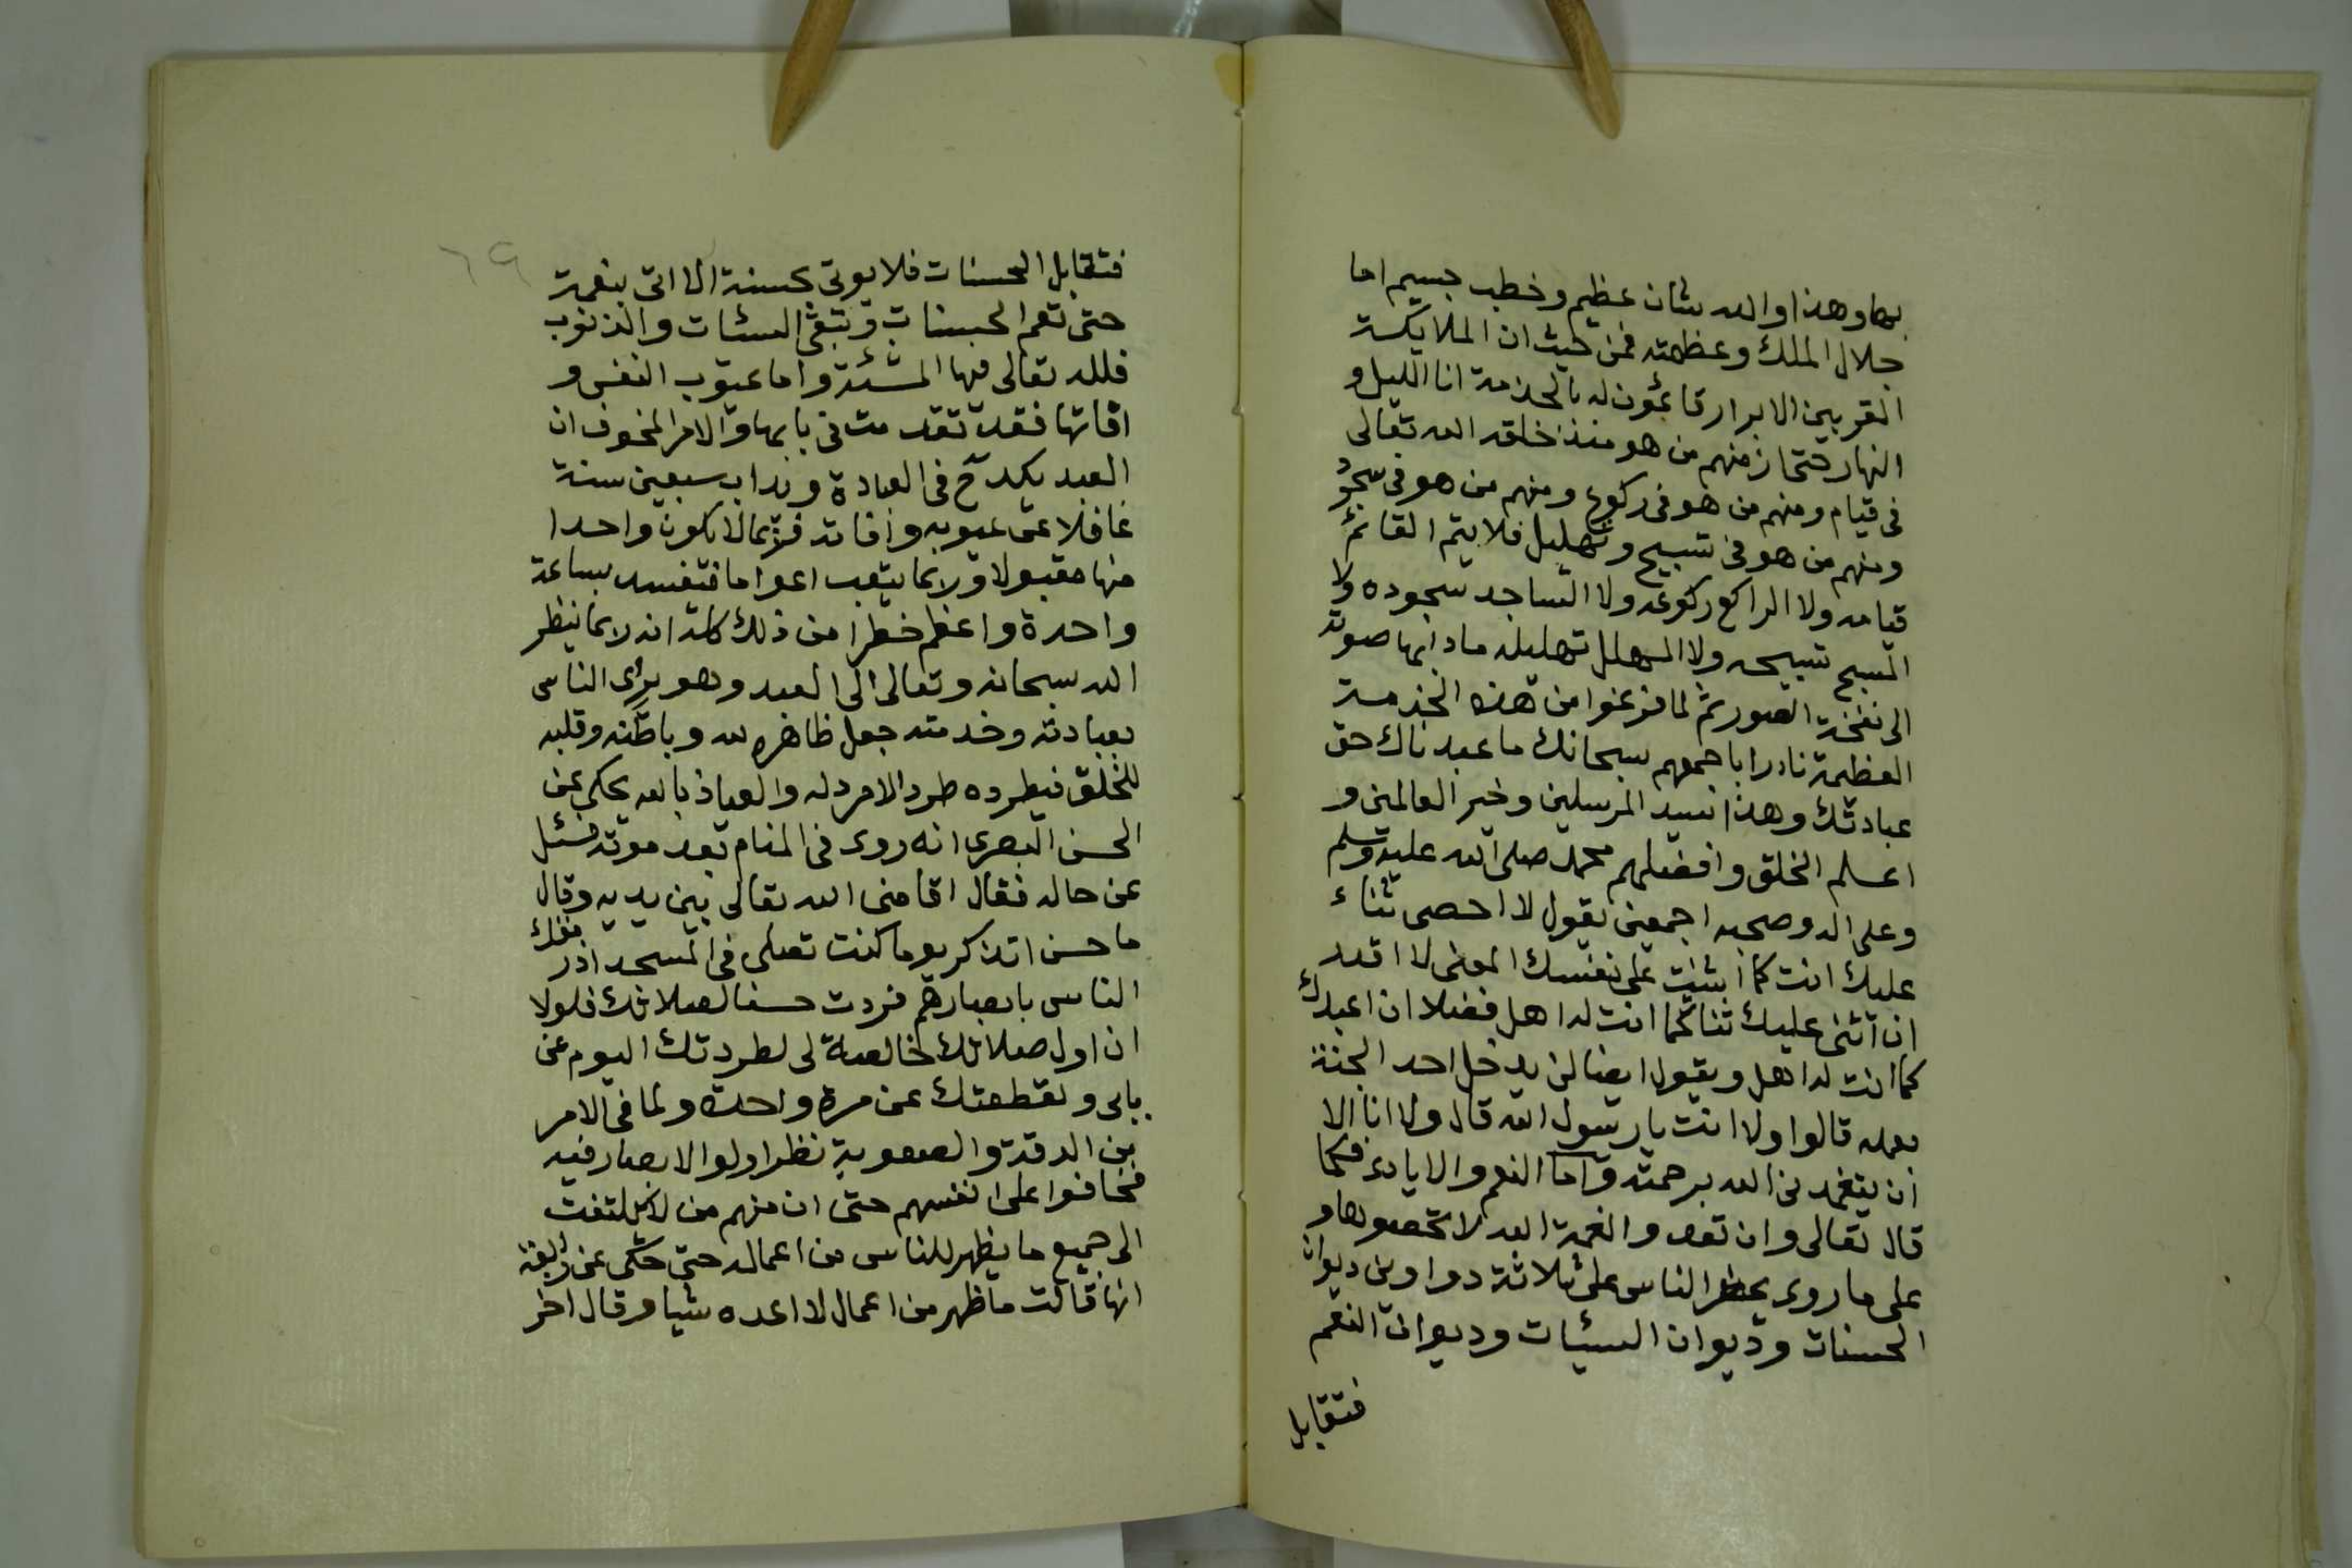 بها وهذا والله شان عظيم وخطب جسيم اما
جلال الملك وعظمته فمن حيث ان الملايكة
المقربين الابرار قائمون له بالخدمة انا الليل و
النهار حتى ان منهم من هو منذ خلقه الله تعالى
فى قيام ومنهم من هو فى ركوع ومنهم من هو فى سجود
ومنهم من هو فى تسبيح وتهليل فلا يتم القائم
قيامه ولا الراكع ركوعه ولا الساجد سجوده ولا
المسبح تسبيحه ولا المهلل تهليله مادابها صوته
الى نفخة الصور ثم لما فرغوا من هذه الخدمة
العظيمة نادوا باجمعهم سبحانك ما عبدناك حق
عبادتك وهذا سيد المرسلين وخير العالمين و
اعلم الخلق وافضلهم محمد صلى الله عليه وسلم
وعلى اله وصحبه اجمعين يقول لا احصى ثناء
عليك انت كما اثنيت على نفسك المعنى لا اقدر
ان اثنى عليك ثنا كما انت له اهل فضلا ان اعبدك
كما انت له اهل ويقول ايضا لن يدخل احد الجنة
بعمله قالوا ولا انت يا رسول الله قال ولا انا الا
ان يتغمدنى الله برحمته واما النعم والايادى فكما
قال تعالى وان تعدوا نعمة الله لا تحصوها و
على ما روى يحشر الناس على ثلاثة دواوين ديوان
الحسنات وديوان السيئات وديوان النعم
فتقابل
٦٩
فتقابل الحسنات فلا يوتى بحسنة الا اتى بنعمة
حتى تعم الحسنات وتبقى السئات والذنوب
فلله تعالى فيها المشئة واما عيوب النفس و
افاتها فقد تقدمت فى بابها والامر المخوف ان
العبد يكدح فى العبادة ويداب سبعين سنة
غافلا عن عيوبه وافاته فربما لا يكون واحدا
منها مقبولا وربما يتعب اعواما فتفسد بساعة
واحدة واعظم خطرا من ذلك كله انه ربما ينظر
الله سبحانه وتعالى الى العبد وهو يراى الناس
بعبادته وخدمته جعل ظاهره لله وباطنه وقلبه
للخلق فيطرده طرد الامرد له والعياذ بالله يحكى عن
الحسن البصرى انه روى فى المنام بعد موته فسئل
عن حاله فقال اقامنى الله تعالى بين يديه وقال
ما حسن اتذكر يوما كنت تصلى فى المسجد اذ رمقك
الناس بابصارهم فزدت حسنا لصلاتك فلولا
ان اول صلاتك خالصة لى لطردتك اليوم عن
بابى ولقطعتك عن مرة واحدة ولما فى الامر
من الدقة والصعوبة نظر اولوا الابصار فيه
فخافوا على انفسهم حتى ان منهم من لا يلتفت
الى جميع ما يظهر للناس من اعماله حتى حكى عن رابعة
انها قالت ما ظهر من اعمال لا اعده شيا وقال اخر